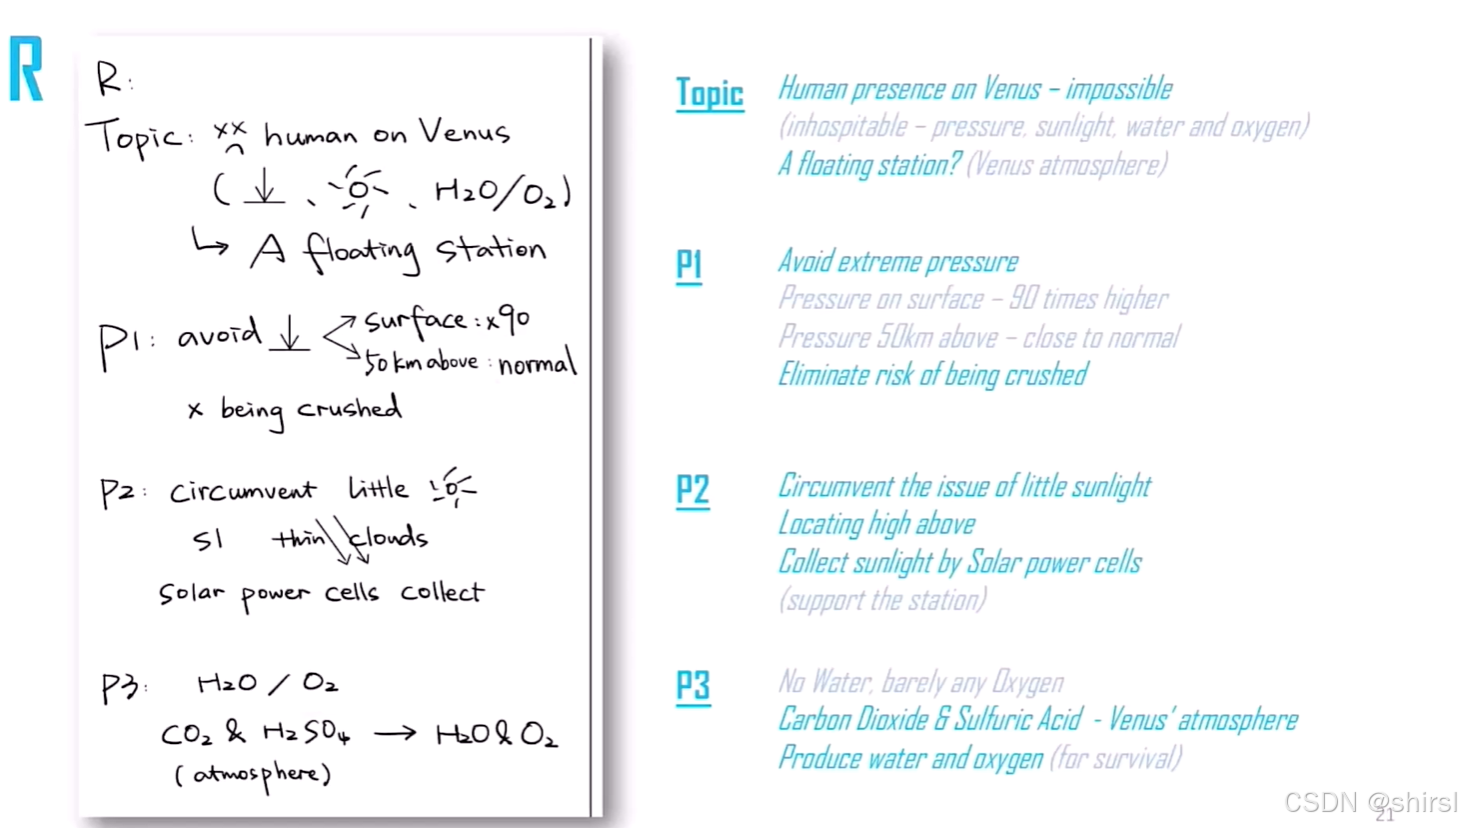 R
R:
Topic: xx human on Venus
( ↓ 、 、 H₂O/O₂)
↳ A floating station
P1: avoid ↓ surface: x90
50km above: normal
x being crushed
P2: circumvent little
Sl thin clouds
Solar power cells collect
P3: H₂O / O₂
CO₂ & H₂SO₄ → H₂O & O₂
(atmosphere)
Topic Human presence on Venus – impossible
(inhospitable – pressure, sunlight, water and oxygen)
A floating station? (Venus atmosphere)
P1 Avoid extreme pressure
Pressure on surface – 90 times higher
Pressure 50km above – close to normal
Eliminate risk of being crushed
P2 Circumvent the issue of little sunlight
Locating high above
Collect sunlight by Solar power cells
(support the station)
P3 No Water, barely any Oxygen
Carbon Dioxide & Sulfuric Acid - Venus' atmosphere
Produce water and oxygen (for survival)
CSDN @shirsl
21